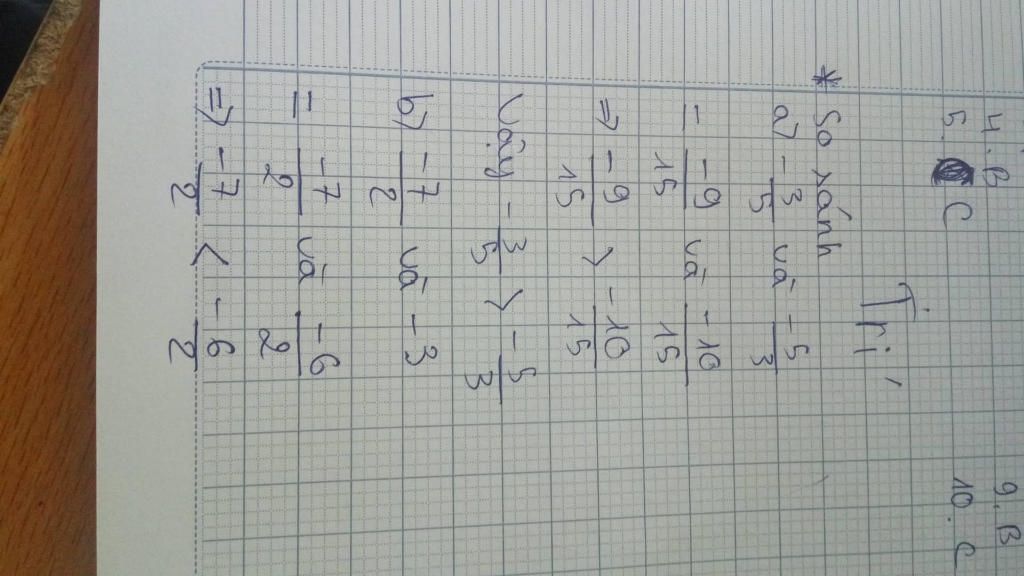 4. B 9. B
5. C 10. C
Trí
* So sánh
a) -3/5 và -5/3
= -9/15 và -10/15
=> -9/15 > -10/15
Vậy -3/5 > -5/3
b) -7/2 và -3
= -7/2 và -6/2
=> -7/2 < -6/2